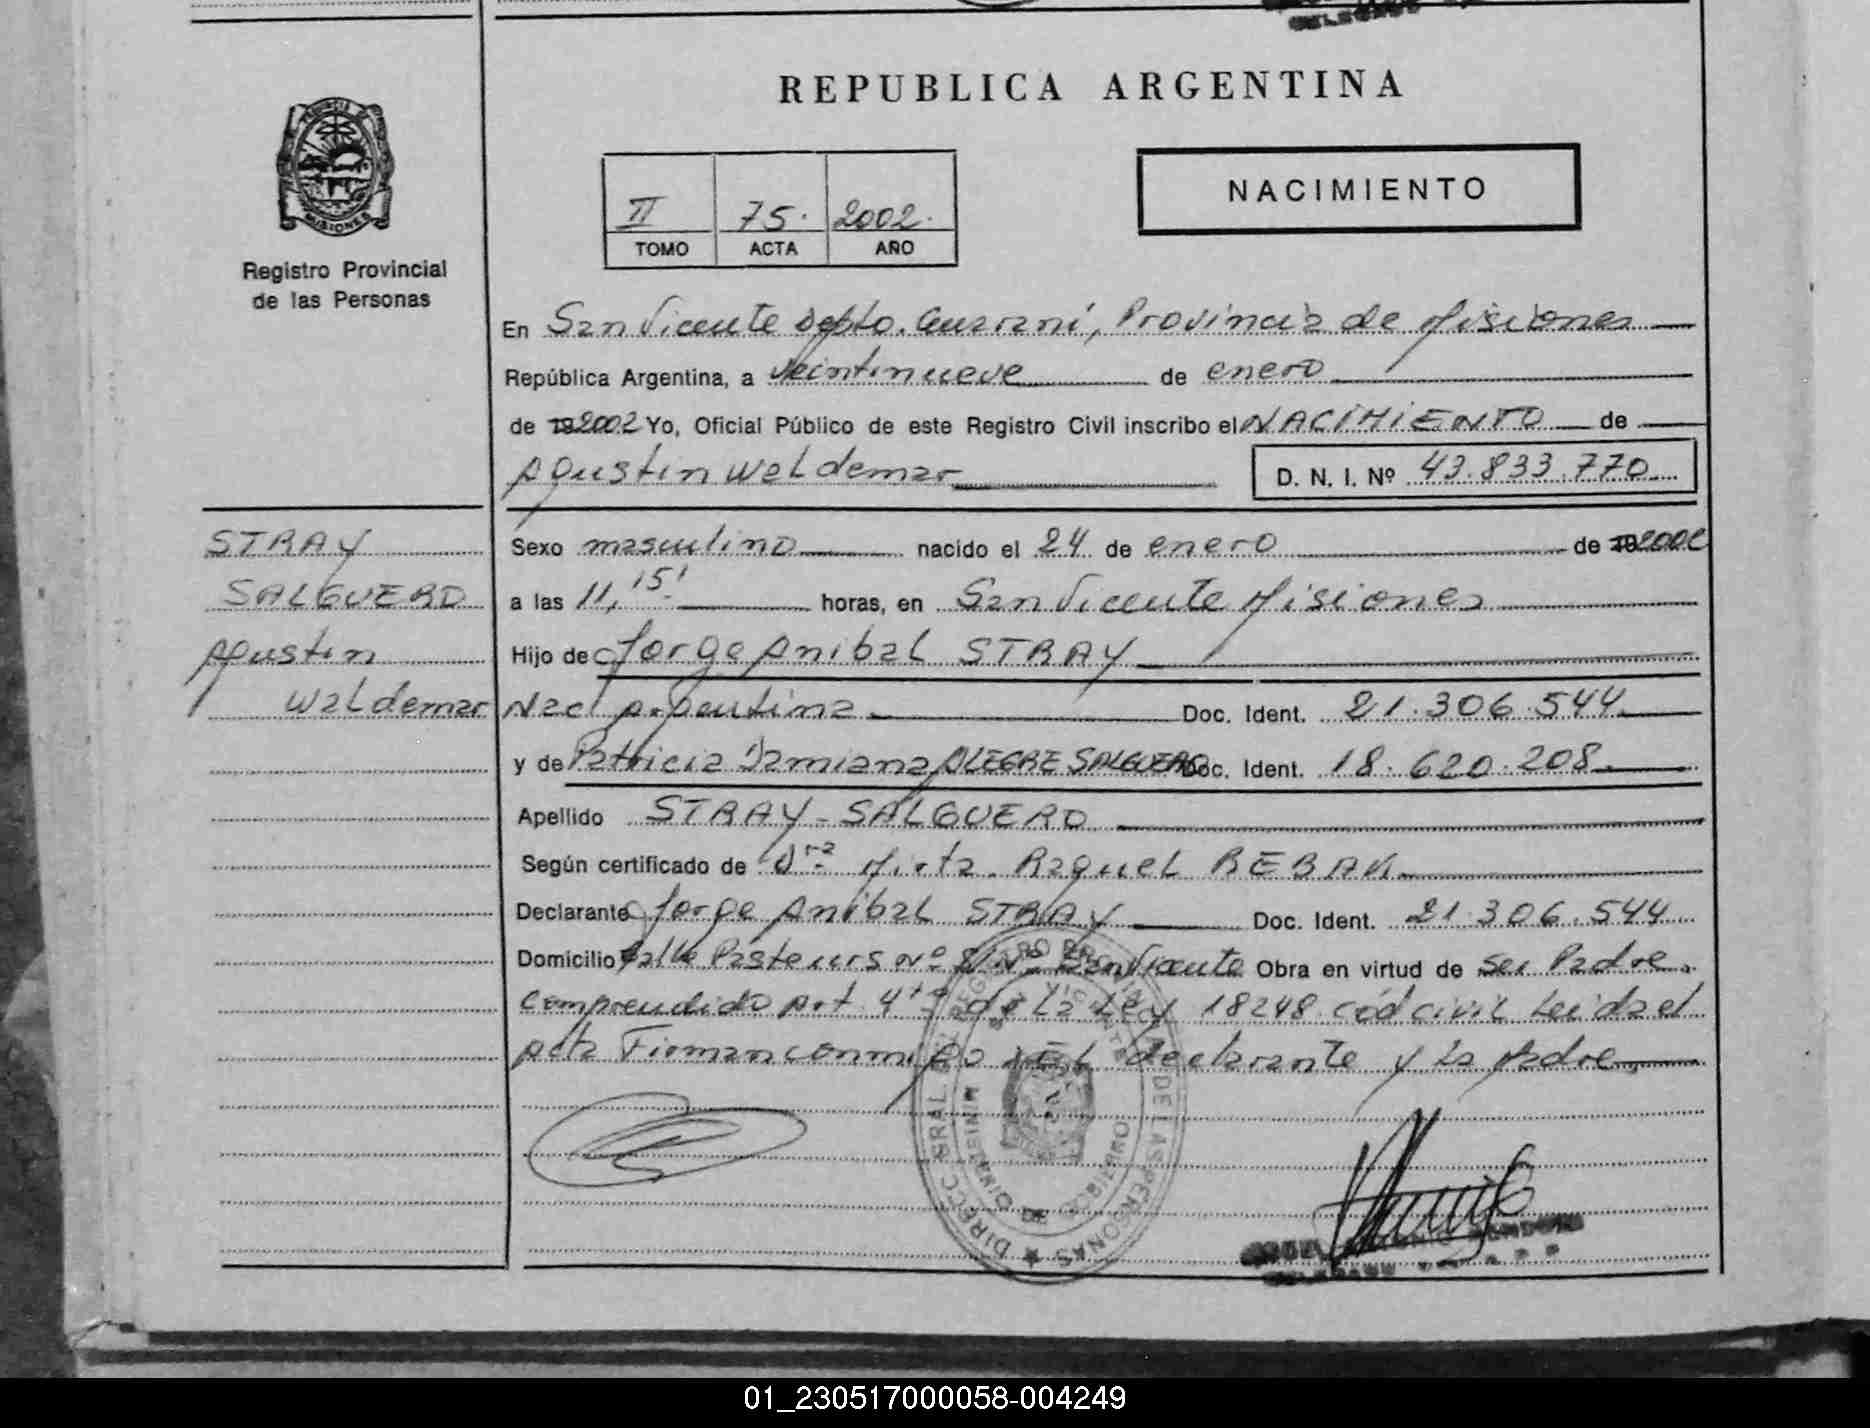 REPUBLICA ARGENTINA
PROVINCIA DE
MISIONES
Registro Provincial
de las Personas
II 75. 2002.
TOMO ACTA AÑO
NACIMIENTO
En San Vicente Dpto. Guaraní, Provincia de Misiones
República Argentina, a veintinueve de enero
de 19 2002 Yo, Oficial Público de este Registro Civil inscribo el NACIMIENTO de
Agustin Waldemar D. N. I. Nº 43.833.770
STRAY
SALGUERO
Agustin
Waldemar
Sexo masculino nacido el 24 de enero de 19 2002
a las 11,15' horas, en San Vicente Misiones
Hijo de Jorge Anibal STRAY
Nac Argentina Doc. Ident. 21.306.544
y de Patricia Damiana ALEGRE SALGUERO Doc. Ident. 18.620.208
Apellido STRAY - SALGUERO
Según certificado de Dra Mirta Raquel
Declarante Jorge Anibal STRAY Doc. Ident. 21.306.544
Domicilio Calle Pasteurs Nº S/Nº San Vicente Obra en virtud de ser Padre.
Comprendido Art. 4to de la Ley 18248 cód civil Leida el
Acta Firman conmigo el declarante y la Madre
DIRECC GRAL DEL REGISTRO PROVINCIAL DE LAS PERSONAS
SAN VICENTE
MINISTERIO DE GOBIERNO
01_230517000058-004249